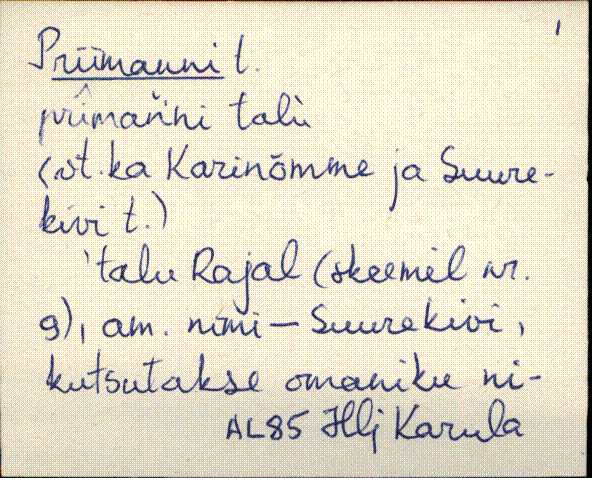 1
Priimanni t.
priìmań̀ni talù
(vt. ka Karinõmme ja Suure-
kivi t.)
'talu Rajal (skeemil nr.
9), am. nimi – Suurekivi,
kutsutakse omaniku ni-
AL85 Hlj Karula